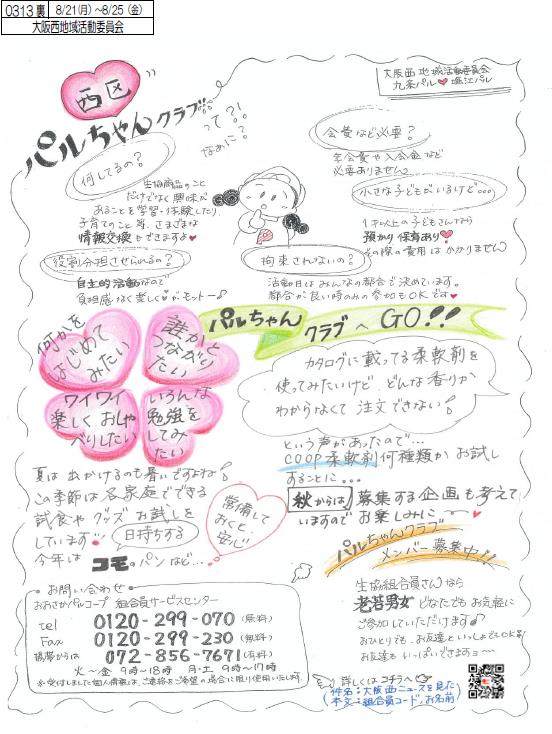 0313 裏
8/21(月)~8/25(金)
大阪西地域活動委員会
大阪西地域活動委員会
九条パル♥堀江パル
西区
パルちゃんクラブ
って?!
なぁに?
何してるの?
生協商品のこと
だけでなく興味が
あることを学習・体験したり、
子育てのこと等、さまざまな
情報交換もできますよ♥
会費など必要?
年会費や入会金など
必要ありません
小さな子どもがいるけど。。。
1才以上の子どもさんなら
預かり保育あり♥
その際の費用はかかりません
役割分担させられるの?
自主的活動なので
負担感なく楽しく♥がモットー♪
拘束されないの?
活動日はみんなの都合で決めています。
都合が良い時のみの参加もOKです♥
パルちゃん
クラブへGO!!
何かを
はじめて
みたい
誰かと
つながり
たい
ワイワイ
楽しくおしゃ
べりしたい
いろんな
勉強を
してみ
たい
カタログに載ってる柔軟剤を
使ってみたいけど、どんな香りか
わからなくて注文できない!
という声があったので…
COOP柔軟剤何種類かお試し
することに。。。
秋からは、募集する企画も考えて
いますので お楽しみに~♥
夏は出かけるのも暑いですよね!
この季節は各家庭でできる
試食やグッズお試しを
しています♥
今年は 日持ちする
コモのパンなど…
常備して
おくと、
安心♡
パルちゃんクラブ
メンバー募集中!!
生協組合員さんなら
老若男女 どなたでもお気軽に
ご参加していただけます♪
おひとりでも、お友達といっしょでもOK!
お友達もいっぱいできますョ~
お問い合わせ
おおさかパルコープ 組合員サービスセンター
tel 0120-299-070(無料)
Fax 0120-299-230(無料)
携帯からは 072-856-7671(有料)
火~金 9時~18時 月・土 9時~17時
※受付しました個人情報は、ご連絡をご希望の場合に限り使用いたします。
詳しくはコチラへ
(件名:大阪西ニュースを見た)
(本文:組合員コード、お名前)